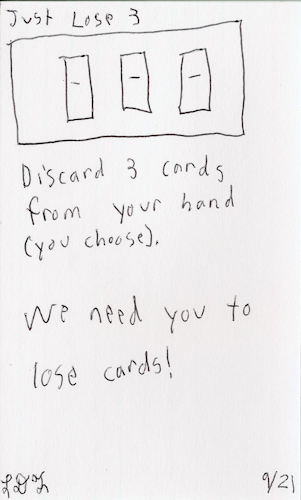 Just Lose 3
Discard 3 cards
from your hand
(you choose).
We need you to
lose cards!
9/21